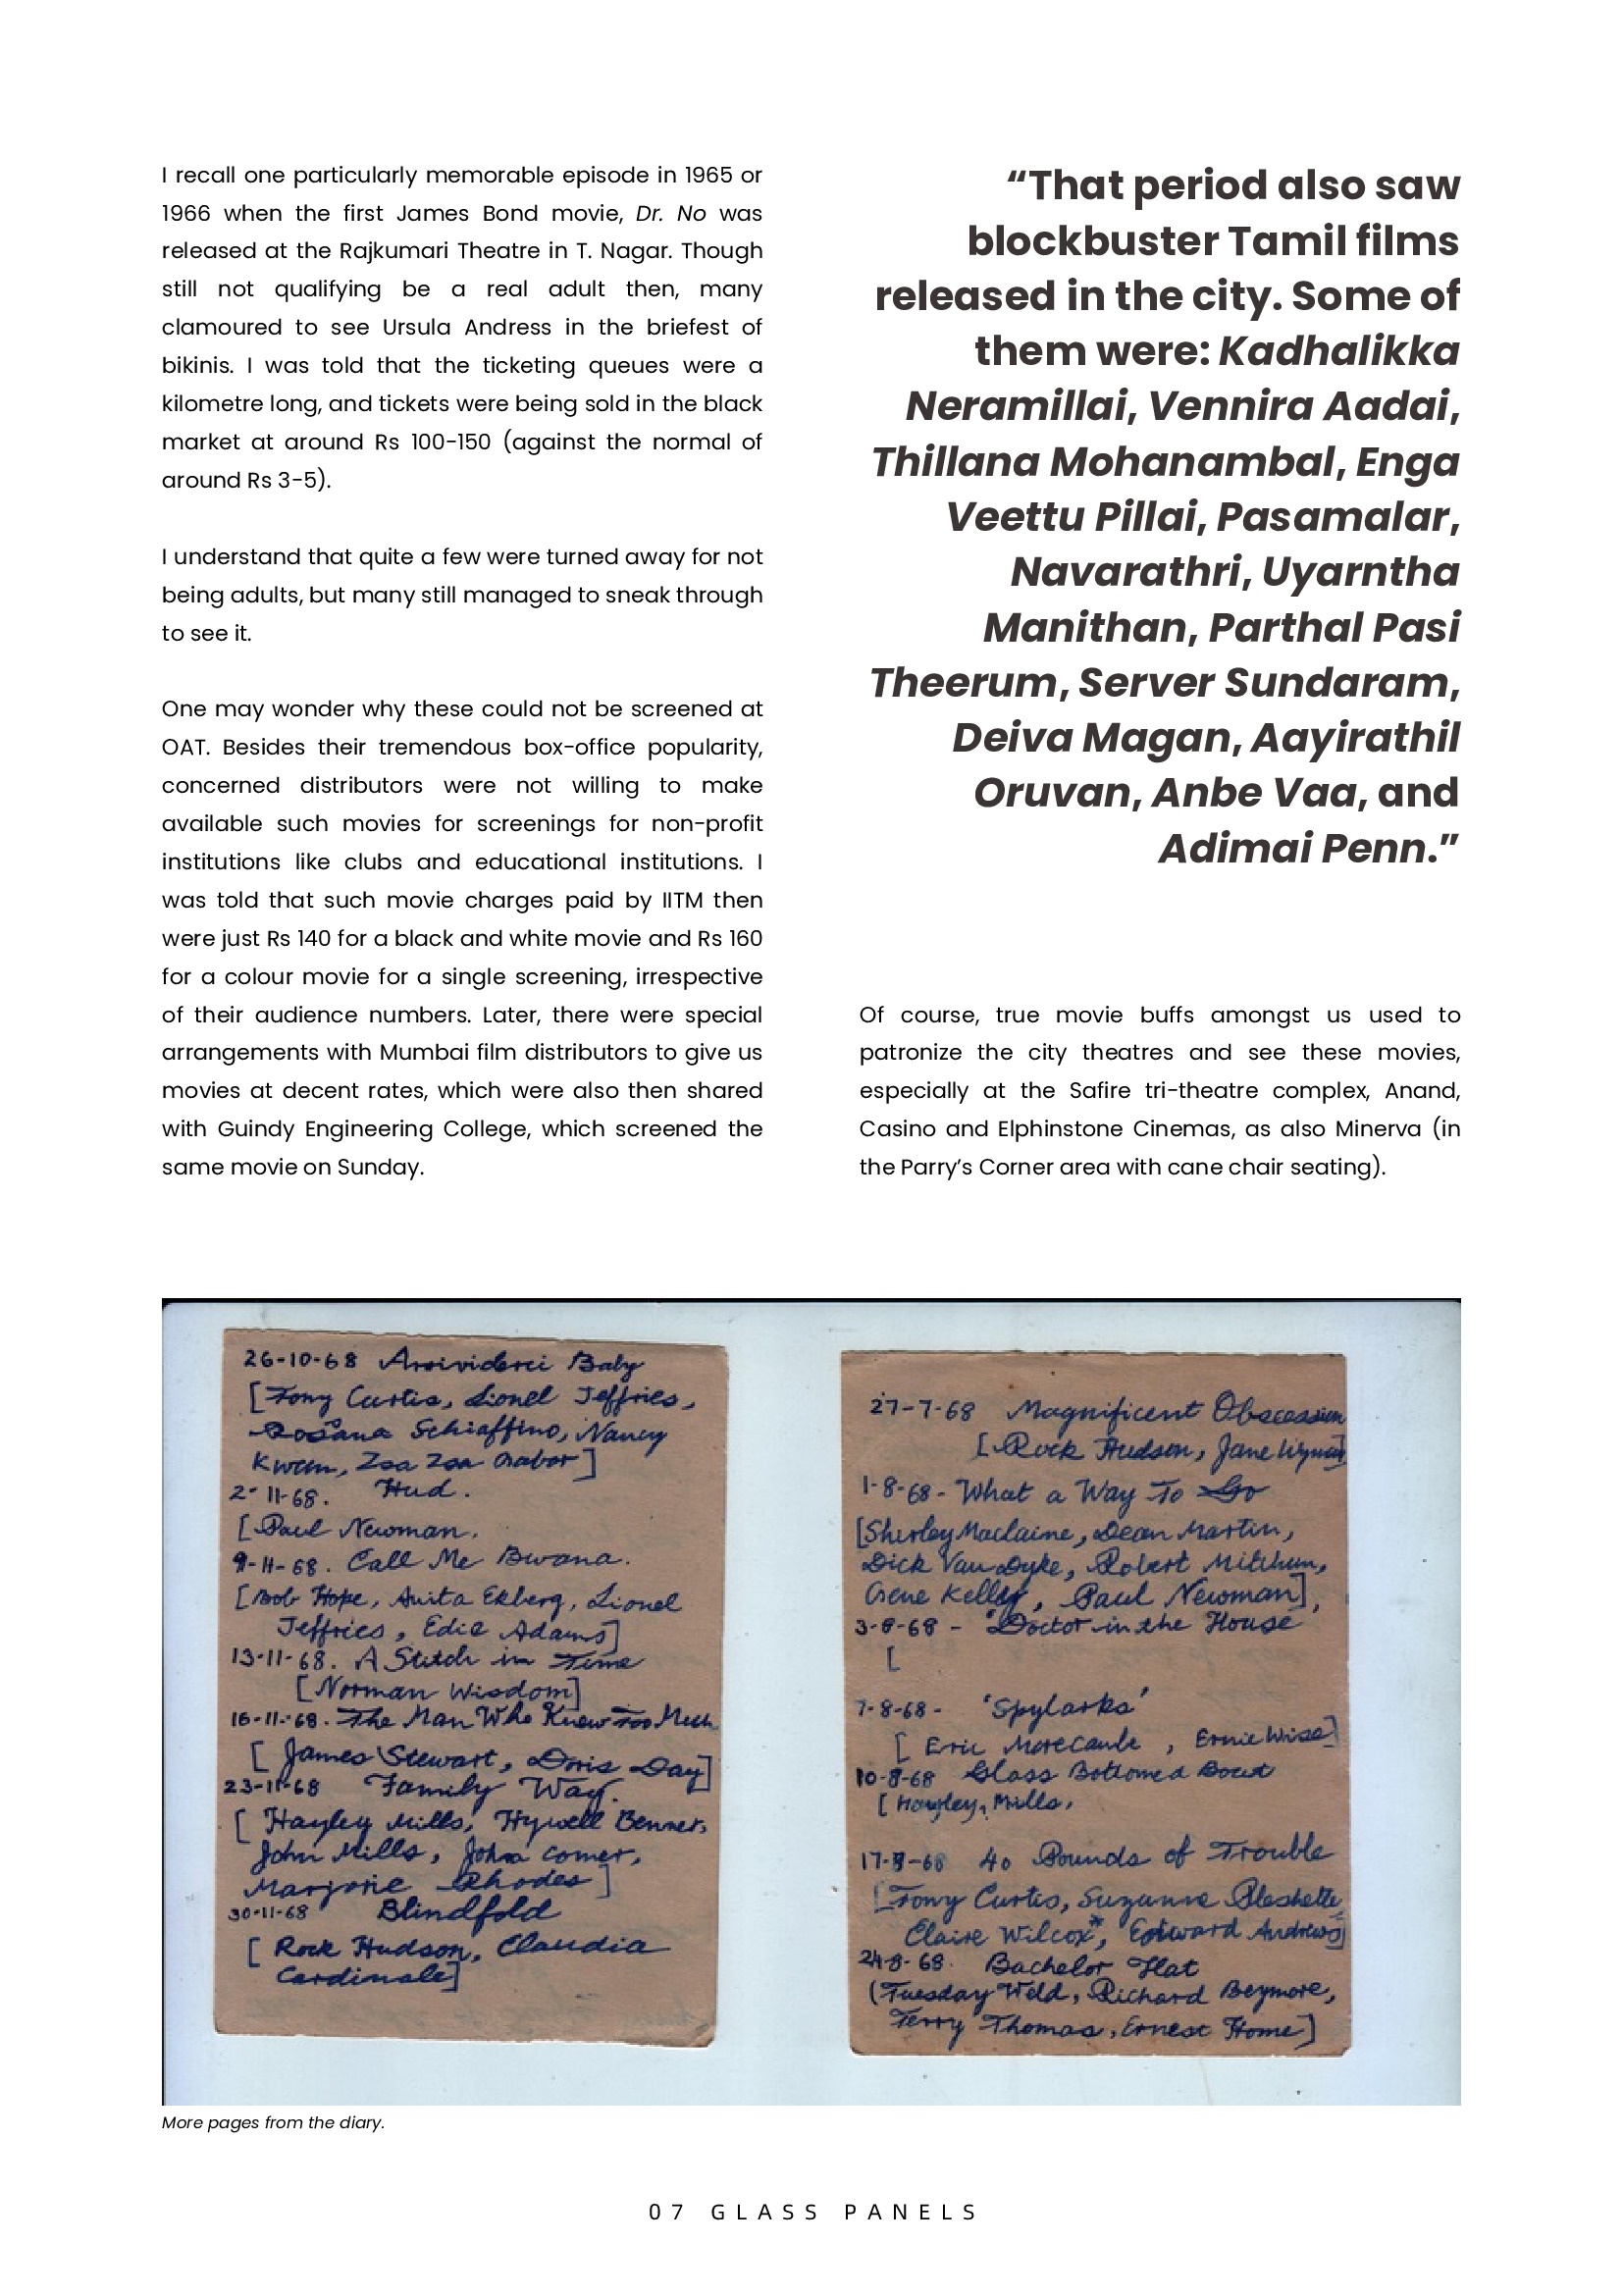 I recall one particularly memorable episode in 1965 or
1966 when the first James Bond movie, Dr. No was
released at the Rajkumari Theatre in T. Nagar. Though
still not qualifying be a real adult then, many
clamoured to see Ursula Andress in the briefest of
bikinis. I was told that the ticketing queues were a
kilometre long, and tickets were being sold in the black
market at around Rs 100-150 (against the normal of
around Rs 3-5).
I understand that quite a few were turned away for not
being adults, but many still managed to sneak through
to see it.
One may wonder why these could not be screened at
OAT. Besides their tremendous box-office popularity,
concerned distributors were not willing to make
available such movies for screenings for non-profit
institutions like clubs and educational institutions. I
was told that such movie charges paid by IITM then
were just Rs 140 for a black and white movie and Rs 160
for a colour movie for a single screening, irrespective
of their audience numbers. Later, there were special
arrangements with Mumbai film distributors to give us
movies at decent rates, which were also then shared
with Guindy Engineering College, which screened the
same movie on Sunday.
“That period also saw
blockbuster Tamil films
released in the city. Some of
them were: Kadhalikka
Neramillai, Vennira Aadai,
Thillana Mohanambal, Enga
Veettu Pillai, Pasamalar,
Navarathri, Uyarntha
Manithan, Parthal Pasi
Theerum, Server Sundaram,
Deiva Magan, Aayirathil
Oruvan, Anbe Vaa, and
Adimai Penn.”
Of course, true movie buffs amongst us used to
patronize the city theatres and see these movies,
especially at the Safire tri-theatre complex, Anand,
Casino and Elphinstone Cinemas, as also Minerva (in
the Parry’s Corner area with cane chair seating).
26-10-68 Arrividerci Baby
[Tony Curtis, Lionel Jeffries,
Rosana Schiaffino, Nancy
Kwan, Zsa Zsa Gabor]
2-11-68. Hud.
[Paul Newman.
9-11-68. Call Me Bwana.
[Bob Hope, Anita Ekberg, Lionel
Jeffries, Edie Adams]
13-11-68. A Stitch in Time
[Norman Wisdom]
16-11-68. The Man Who Knew Too Much
[James Stewart, Doris Day]
23-11-68 Family Way.
[Hayley Mills, Hywell Bennet,
John Mills, John Comer,
Marjorie Rhodes]
30-11-68 Blindfold
[Rock Hudson, Claudia
Cardinale]
27-7-68 Magnificent Obsession
[Rock Hudson, Jane Wyman]
1-8-68- What a Way To Go
[Shirley Maclaine, Dean Martin,
Dick Van Dyke, Robert Mitchum,
Gene Kelley, Paul Newman],
3-8-68 - 'Doctor in the House
[
7-8-68- 'Spylarks'
[Eric Morecambe, Ernie Wise]
10-8-68 Glass Bottomed Boat
[Hayley, Mills,
17-8-68 40 Pounds of Trouble
[Tony Curtis, Suzanne Pleshette,
Claire Wilcox*, Edward Andrews]
24-8-68. Bachelor Flat
(Tuesday Weld, Richard Beymore,
Terry Thomas, Ernest Home]
More pages from the diary.
07 GLASS PANELS